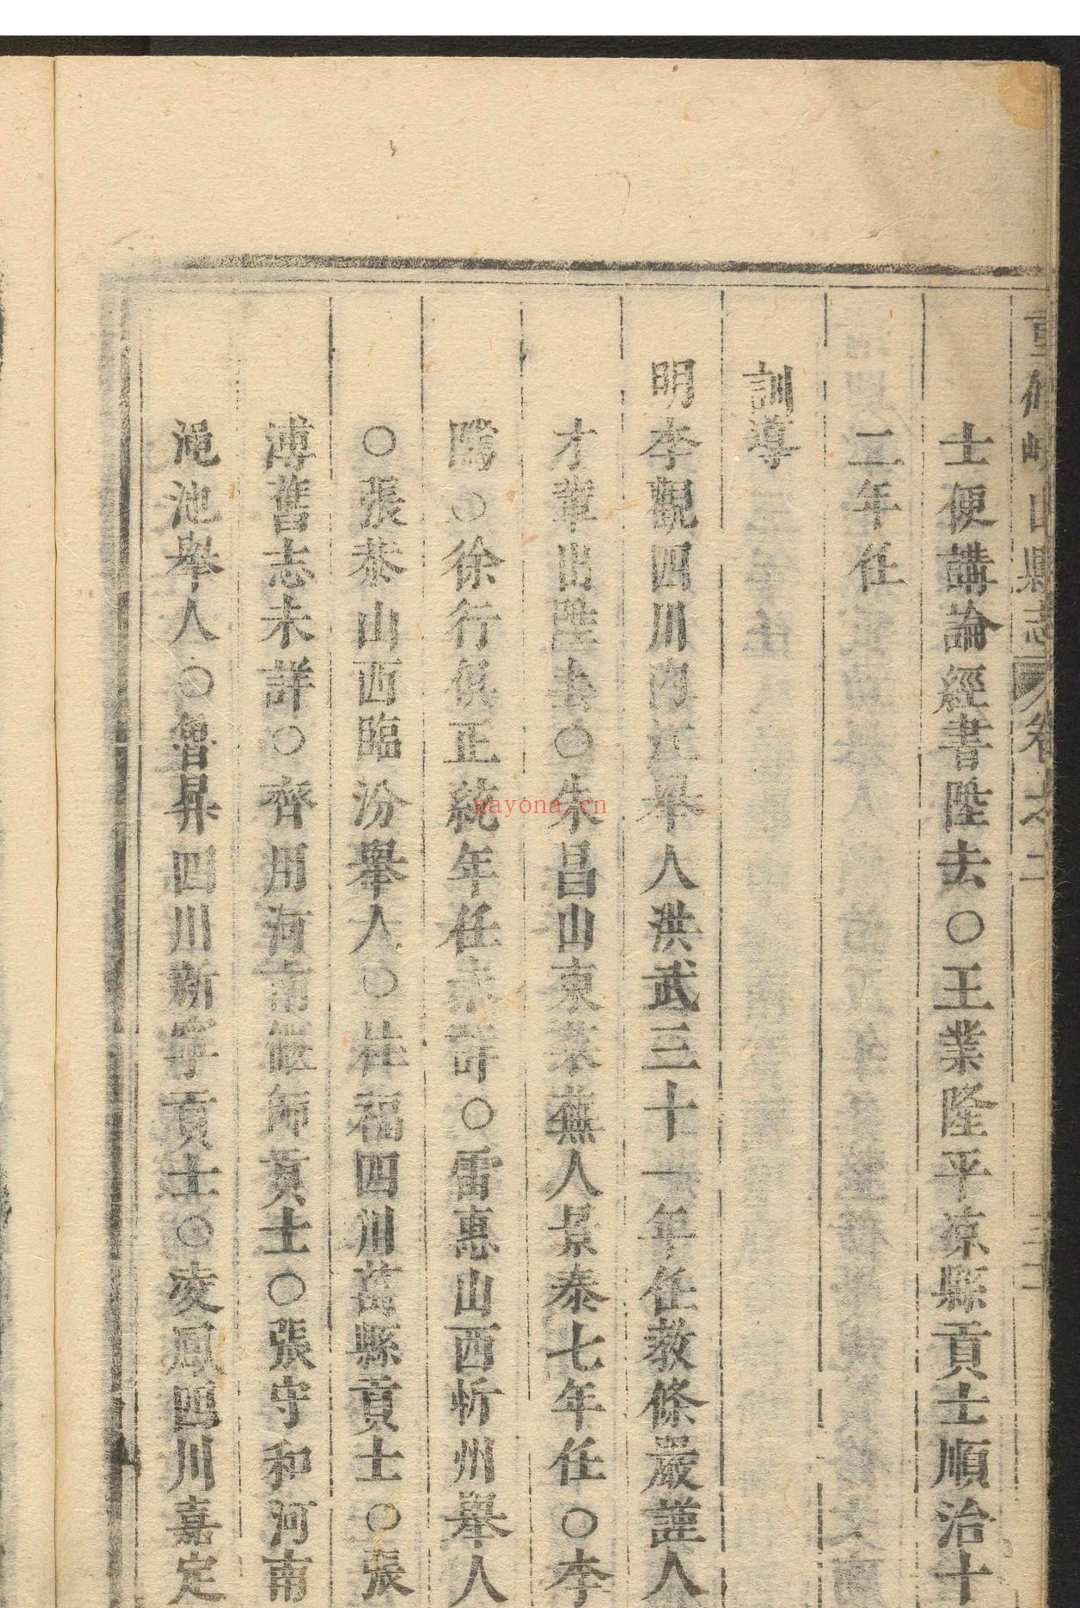 重修岐山縣志 卷之二
士便講論經書陞去○王業隆平涼縣貢士順治十
二年任
訓導
明李觀四川內江舉人洪武三十一年任教條嚴謹人
才輩出陞去○朱昌山東萊蕪人景泰七年任○李
騰○徐行俱正統年任未詳○雷惠山西忻州舉人
○張恭山西臨汾舉人○杜福四川萬縣貢士○張
溥舊志未詳○齊用河南偃師貢士○張守和河南
澠池舉人○魯昇四川新寧貢士○凌鳳四川嘉定
nayona.cn